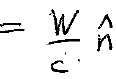 = W/c n̂